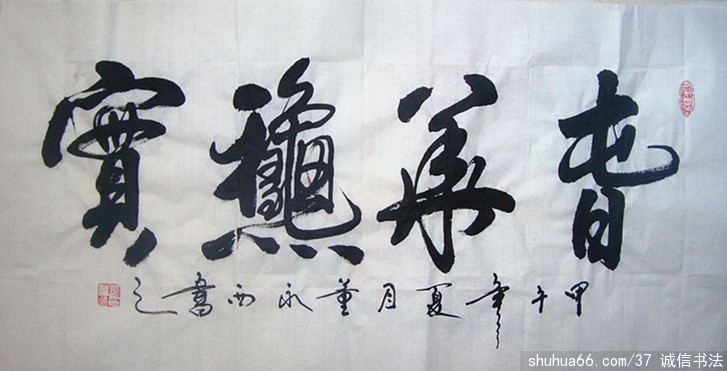 旾華龝實
甲午年夏月董永西書之
shuhua66.com/37 诚信书法